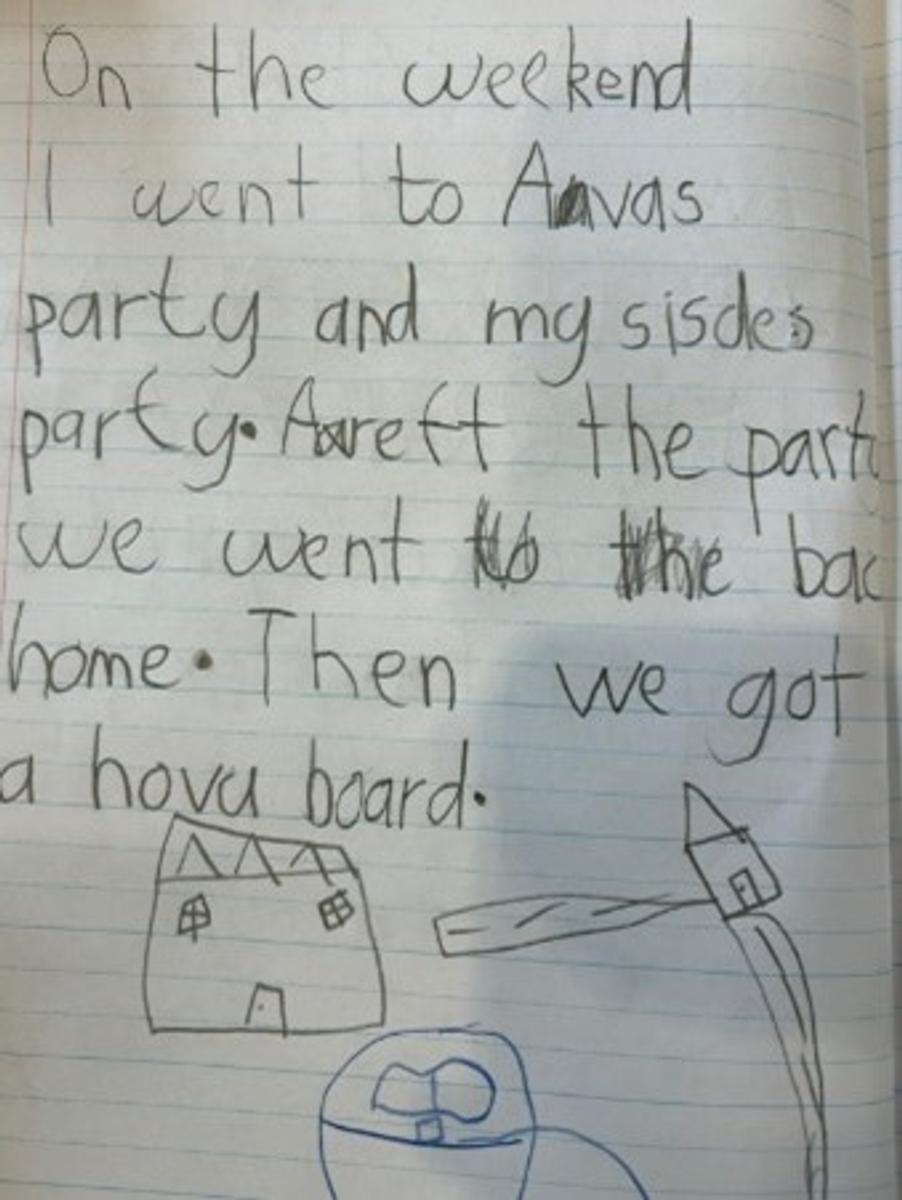 On the weekend
I went to Aavas
party and my sisdes
party. Aareft the part
we went to the bac
home. Then we got
a hova board.